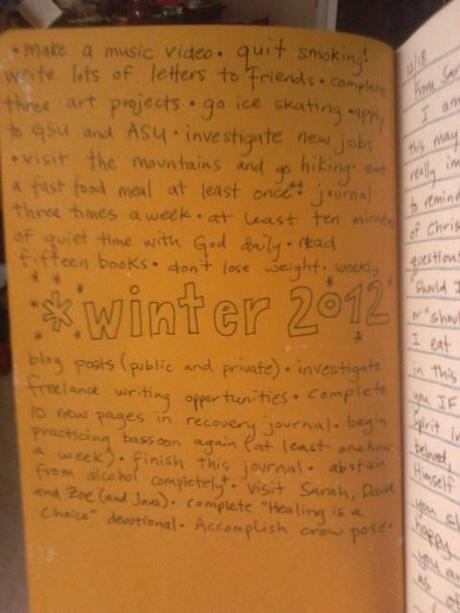 • make a music video • quit smoking!
write lots of letters to friends • complete
three art projects • go ice skating • apply
to GSU and ASU • investigate new jobs
• visit the mountains and go hiking • eat
a fast food meal at least once • journal
three times a week • at least ten minutes
of quiet time with God daily • read
fifteen books • don't lose weight • weekly
* winter 2012 *
blog posts (public and private) • investigate
freelance writing opportunities • complete
10 new pages in recovery journal • begin
practicing bassoon again (at least one hour
a week) • finish this journal • abstain
from alcohol completely • visit Sarah, David,
and Zoe (and Java) • complete "Healing is a
Choice" devotional • Accomplish crow pose •
12/18
from Sar
I am
this may
really im
to remind
of Chris
questions
"should I
or "shou
I eat
in this
you IF
Spirit in
beloved,
Himself
you sh
happy
you a
as o